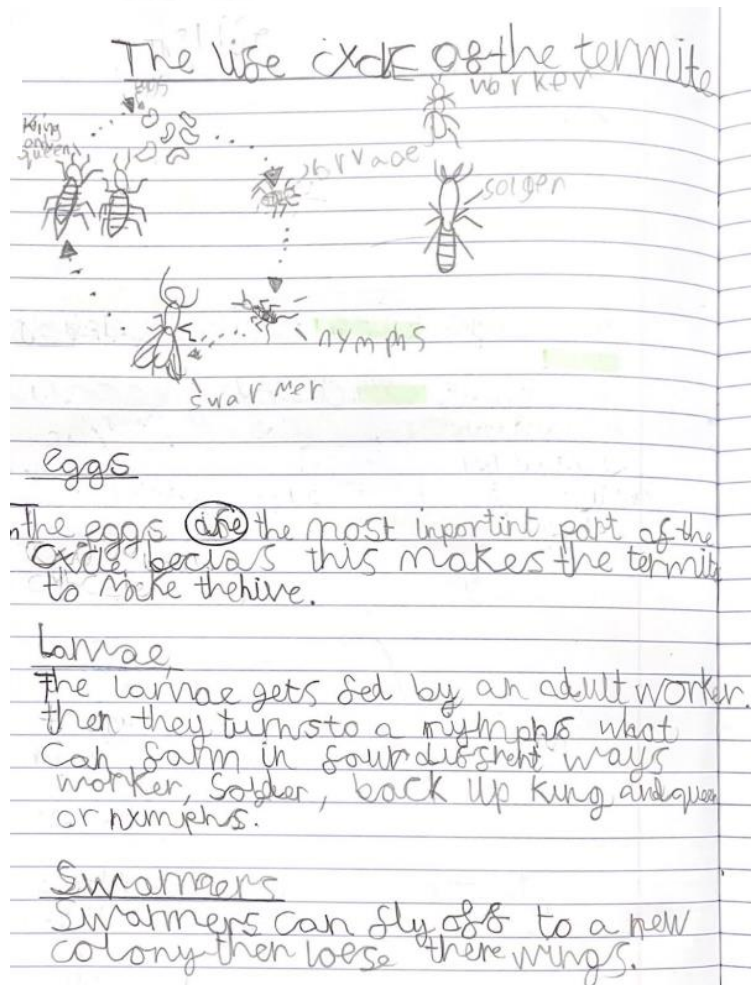 The life cycle of the termite
eggs
worker
King
and
queen
larvaae
solger
nymphs
swarmer
eggs
The eggs are the most inportint part of the
cycle becias this makes the termite
to make the hive.
Larvae
The larvae gets fed by an adult worker.
then they turns to a nymphs what
can form in four diffrent ways
worker, Soldier, back up king and queen
or nymphs.
Swarmers
Swarmers can fly off to a new
colony then loese there wings.